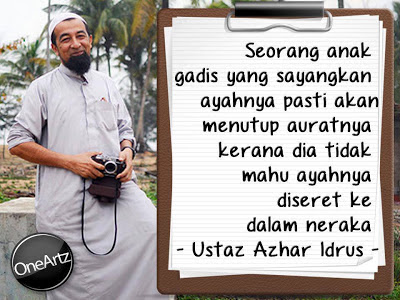 Seorang anak
gadis yang sayangkan
ayahnya pasti akan
menutup auratnya
kerana dia tidak
mahu ayahnya
diseret ke
dalam neraka
- Ustaz Azhar Idrus -
OneArtz